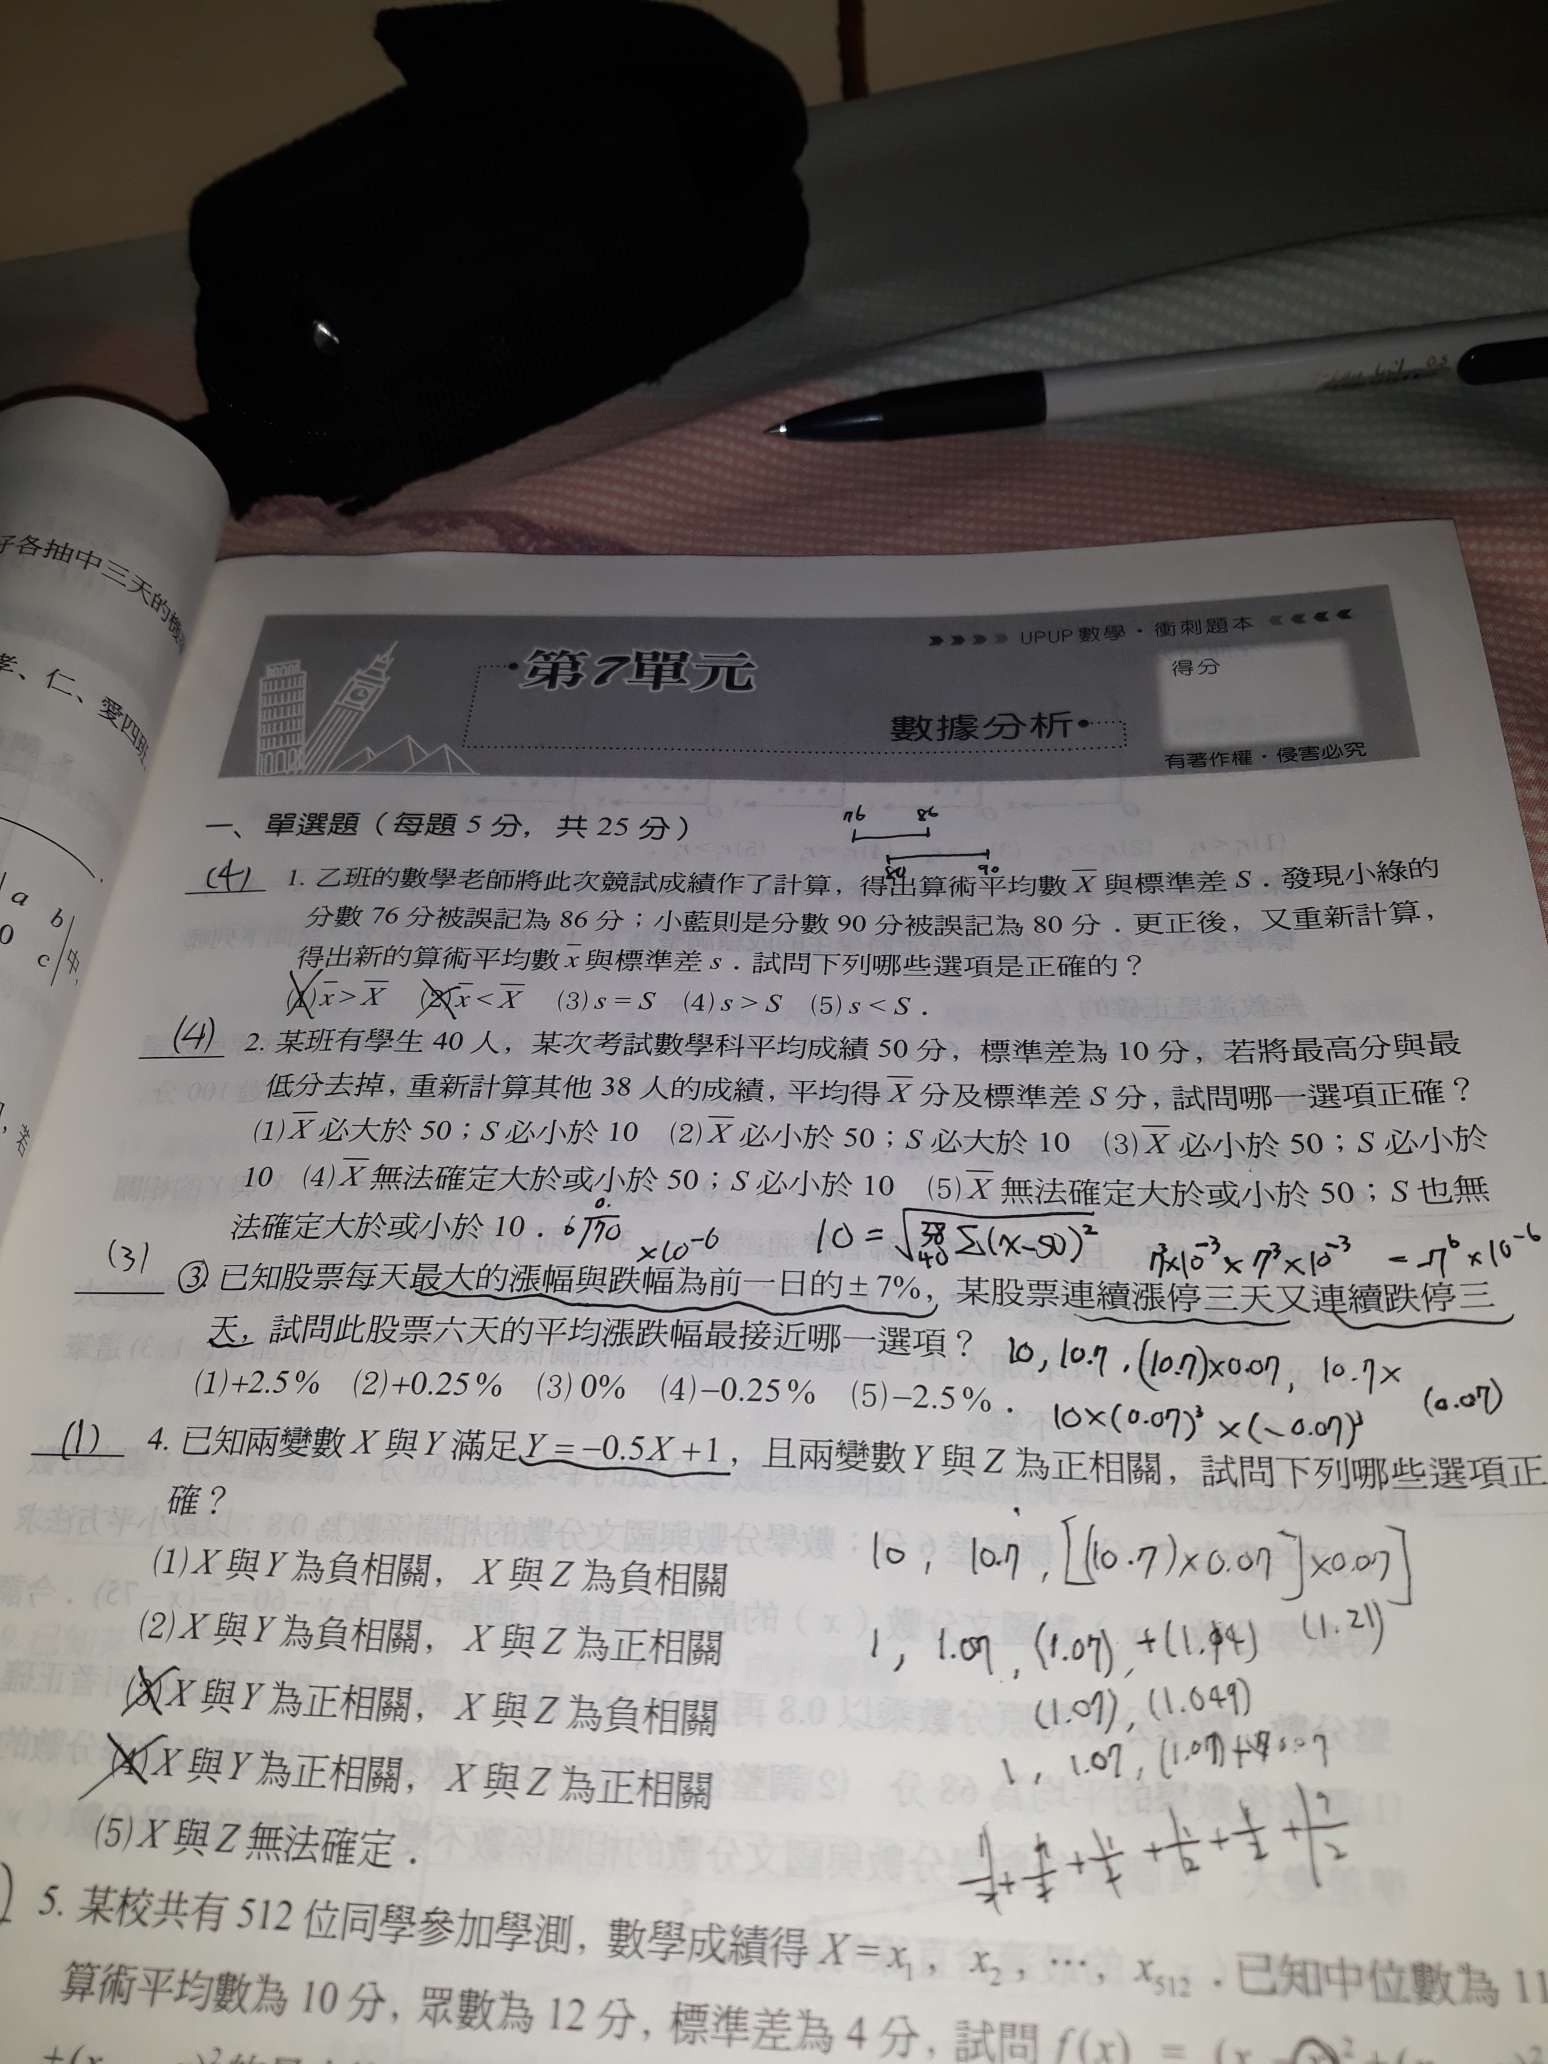 好各抽中三天的機
孝、仁、愛四班、
a b
0 c
中,
若
UPUP 數學・衝刺題本
第7單元
得分
數據分析
有著作權・侵害必究
一、單選題（每題 5 分，共 25 分）
76 86
80 90
(4) 1. 乙班的數學老師將此次競試成績作了計算，得出算術平均數 X̄ 與標準差 S．發現小綠的
分數 76 分被誤記為 86 分；小藍則是分數 90 分被誤記為 80 分．更正後，又重新計算，
得出新的算術平均數 x̄ 與標準差 s．試問下列哪些選項是正確的？
(1) x̄ > X̄ (2) x̄ < X̄ (3) s = S (4) s > S (5) s < S．
(4) 2. 某班有學生 40 人，某次考試數學科平均成績 50 分，標準差為 10 分，若將最高分與最
低分去掉，重新計算其他 38 人的成績，平均得 X̄ 分及標準差 S 分，試問哪一選項正確？
(1) X̄ 必大於 50；S 必小於 10 (2) X̄ 必小於 50；S 必大於 10 (3) X̄ 必小於 50；S 必小於
10 (4) X̄ 無法確定大於或小於 50；S 必小於 10 (5) X̄ 無法確定大於或小於 50；S 也無
法確定大於或小於 10．
×10⁻⁶
10 = √38/40 Σ(x-50)²
7³×10⁻³ × 7³×10⁻³ = -7⁶ × 10⁻⁶
(3) 3. 已知股票每天最大的漲幅與跌幅為前一日的 ± 7%，某股票連續漲停三天又連續跌停三
天，試問此股票六天的平均漲跌幅最接近哪一選項？
10, 10.7, (10.7)×0.07, 10.7×
(0.07)
(1)+2.5% (2)+0.25% (3) 0% (4)−0.25% (5)−2.5%．
10×(0.07)³ ×(-0.07)³
(1) 4. 已知兩變數 X 與 Y 滿足 Y = −0.5X + 1，且兩變數 Y 與 Z 為正相關，試問下列哪些選項正
確？
(1) X 與 Y 為負相關，X 與 Z 為負相關
10, 10.7, [(10.7)×0.07]×0.07]
(2) X 與 Y 為負相關，X 與 Z 為正相關
1, 1.07, (1.07), +(1.14) (1.21)
(3) X 與 Y 為正相關，X 與 Z 為負相關
(1.07), (1.049)
(4) X 與 Y 為正相關，X 與 Z 為正相關
1, 1.07, (1.07)+
(5) X 與 Z 無法確定．
5. 某校共有 512 位同學參加學測，數學成績得 X = x₁，x₂，⋯，x₅₁₂．已知中位數為 11
算術平均數為 10 分，眾數為 12 分，標準差為 4 分，試問 f(x) =